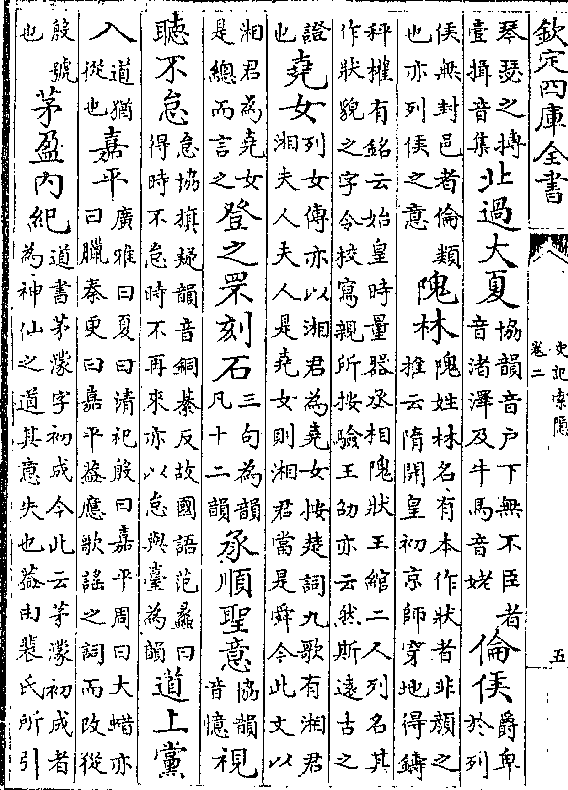 欽定四庫全書
史記索隱
卷二
五
琴瑟之搏壹揖音集北過大夏協韻音户下無不臣者音渚澤及牛馬音姥倫侯爵卑於列
侯無封邑者倫類也亦列侯之意隗林隗姓林名有本作狀者非顔之推云隋開皇初京師穿地得鑄
秤權有銘云始皇時量器丞相隗狀王綰二人列名其作狀貌之字令校寫親所按驗王劭亦云然斯遠古之
證也堯女列女傳亦以湘君為堯女按楚詞九歌有湘君湘夫人夫人是堯女則湘君當是舜今此文以
湘君為堯女是總而言之登之罘刻石三句為韻凡十二韻承順聖意協韻音憶視
聽不怠怠協旗疑韻音銅綦反故國語范蠡曰得時不怠時不再來亦以怠與臺為韻道上黨
入道猶從也嘉平廣雅曰夏曰清祀殷曰嘉平周曰大蜡亦曰臘秦更曰嘉平葢應歌謠之詞而改從
殷號也茅盈内紀道書茅濛字初成今此云茅濛初成者為神仙之道其意失也葢由裴氏所引